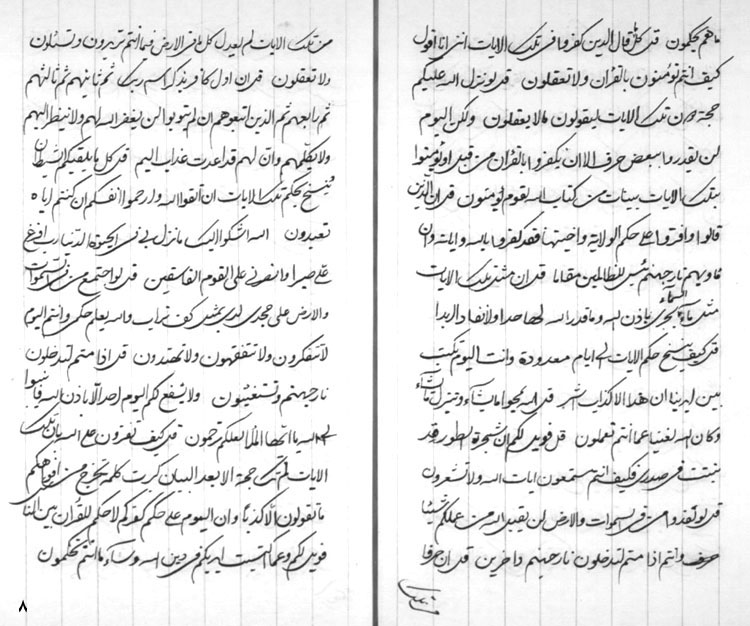 ما هم يحكمون قل كل قال الذين كفروا في تلك الايات انني انا اقول
كيف انتم تؤمنون بالقران ولا تعقلون قل لو نزل الله عليكم
حجة دون تلك الايات ليقولون ما لا يعقلون ولكن اليوم
لن يقدروا ببعض حرف الا ان يكفروا بالقران من قبل او يؤمنوا
بتلك الايات بينات من كتاب الله لقوم يؤمنون قل ان الذين
قالوا وافتروا على حكم الولاية واختيها فقد كفروا بالله واياته وان
ماويهم نار جهنم بئس للظالمين مقاما قل ان مثل تلك الايات
مثل ماء السماء يجري باذن الله وما قدر الله لها حدا ولا نفادا ابدا
قل كيف ينسخ حكم الايات الى ايام معدودة وانت اليوم تكتب
بين ايدينا ان هذا الا كذاب اشر قل الله يمحوا ما يشاء وينزل ما يشاء
وكان الله لغنيا عما انتم تعملون قل فويل لكم ان شجرة الطور قد
نبتت في صدري فكيف انتم تستمعون ايات الله ولا تشعرون
قل لو تفدوا من في السموات والارض لن يقبل الله من عملكم شيئا
حرف وانتم اذا متم لتدخلون نار جهنم داخرين قل ان حرفا
من تلك
من تلك الايات لم يعدل كل ما في الارض فما لكم تزبرون وتسئلون
ولا تعقلون قل ان اول كافر بذكر اسم ربك ثم ثانيهم ثم ثالثهم
ثم رابعهم ثم الذين اتبعوهم ان لم يتوبوا لن يغفر الله لهم ولا ينظر اليهم
ولا يكلمهم وان لهم قد اعدت عذاب اليم قل كل ما يلقيكم الشيطان
فينسخ بحكم تلك الايات ان اتقوا الله وارحموا انفسكم ان كنتم اياه
تعبدون الله اشكوا اليك ما نزل بي في الحيوة الدنيا رب افرغ
علي صبرا وانصرني على القوم الفاسقين قل لو اجتمع من في السموات
والارض على جحدي لدي بمثل كف تراب والله يعلم حكمي وانتم اليوم
لا تتفكرون ولا تتفقهون ولا تهتدون قل اذا متم لتدخلون
نار جهنم وتستغيثون ولا يشفع لكم اليوم احد الا باذن الله فانيبوا
الى الله يا ايها الملأ لعلكم ترحمون قل كيف تفرون على الله بان تلك
الايات لم تك حجة الا بعد البيان كبرت كلمة تخرج من افواهكم
ما تقولون الا كذبا وان اليوم على حكم كفركم لا حكم للقران بين الناس
فويل لكم وعما اكتسبت ايديكم في دين الله وساء ما انتم تحكمون
٨